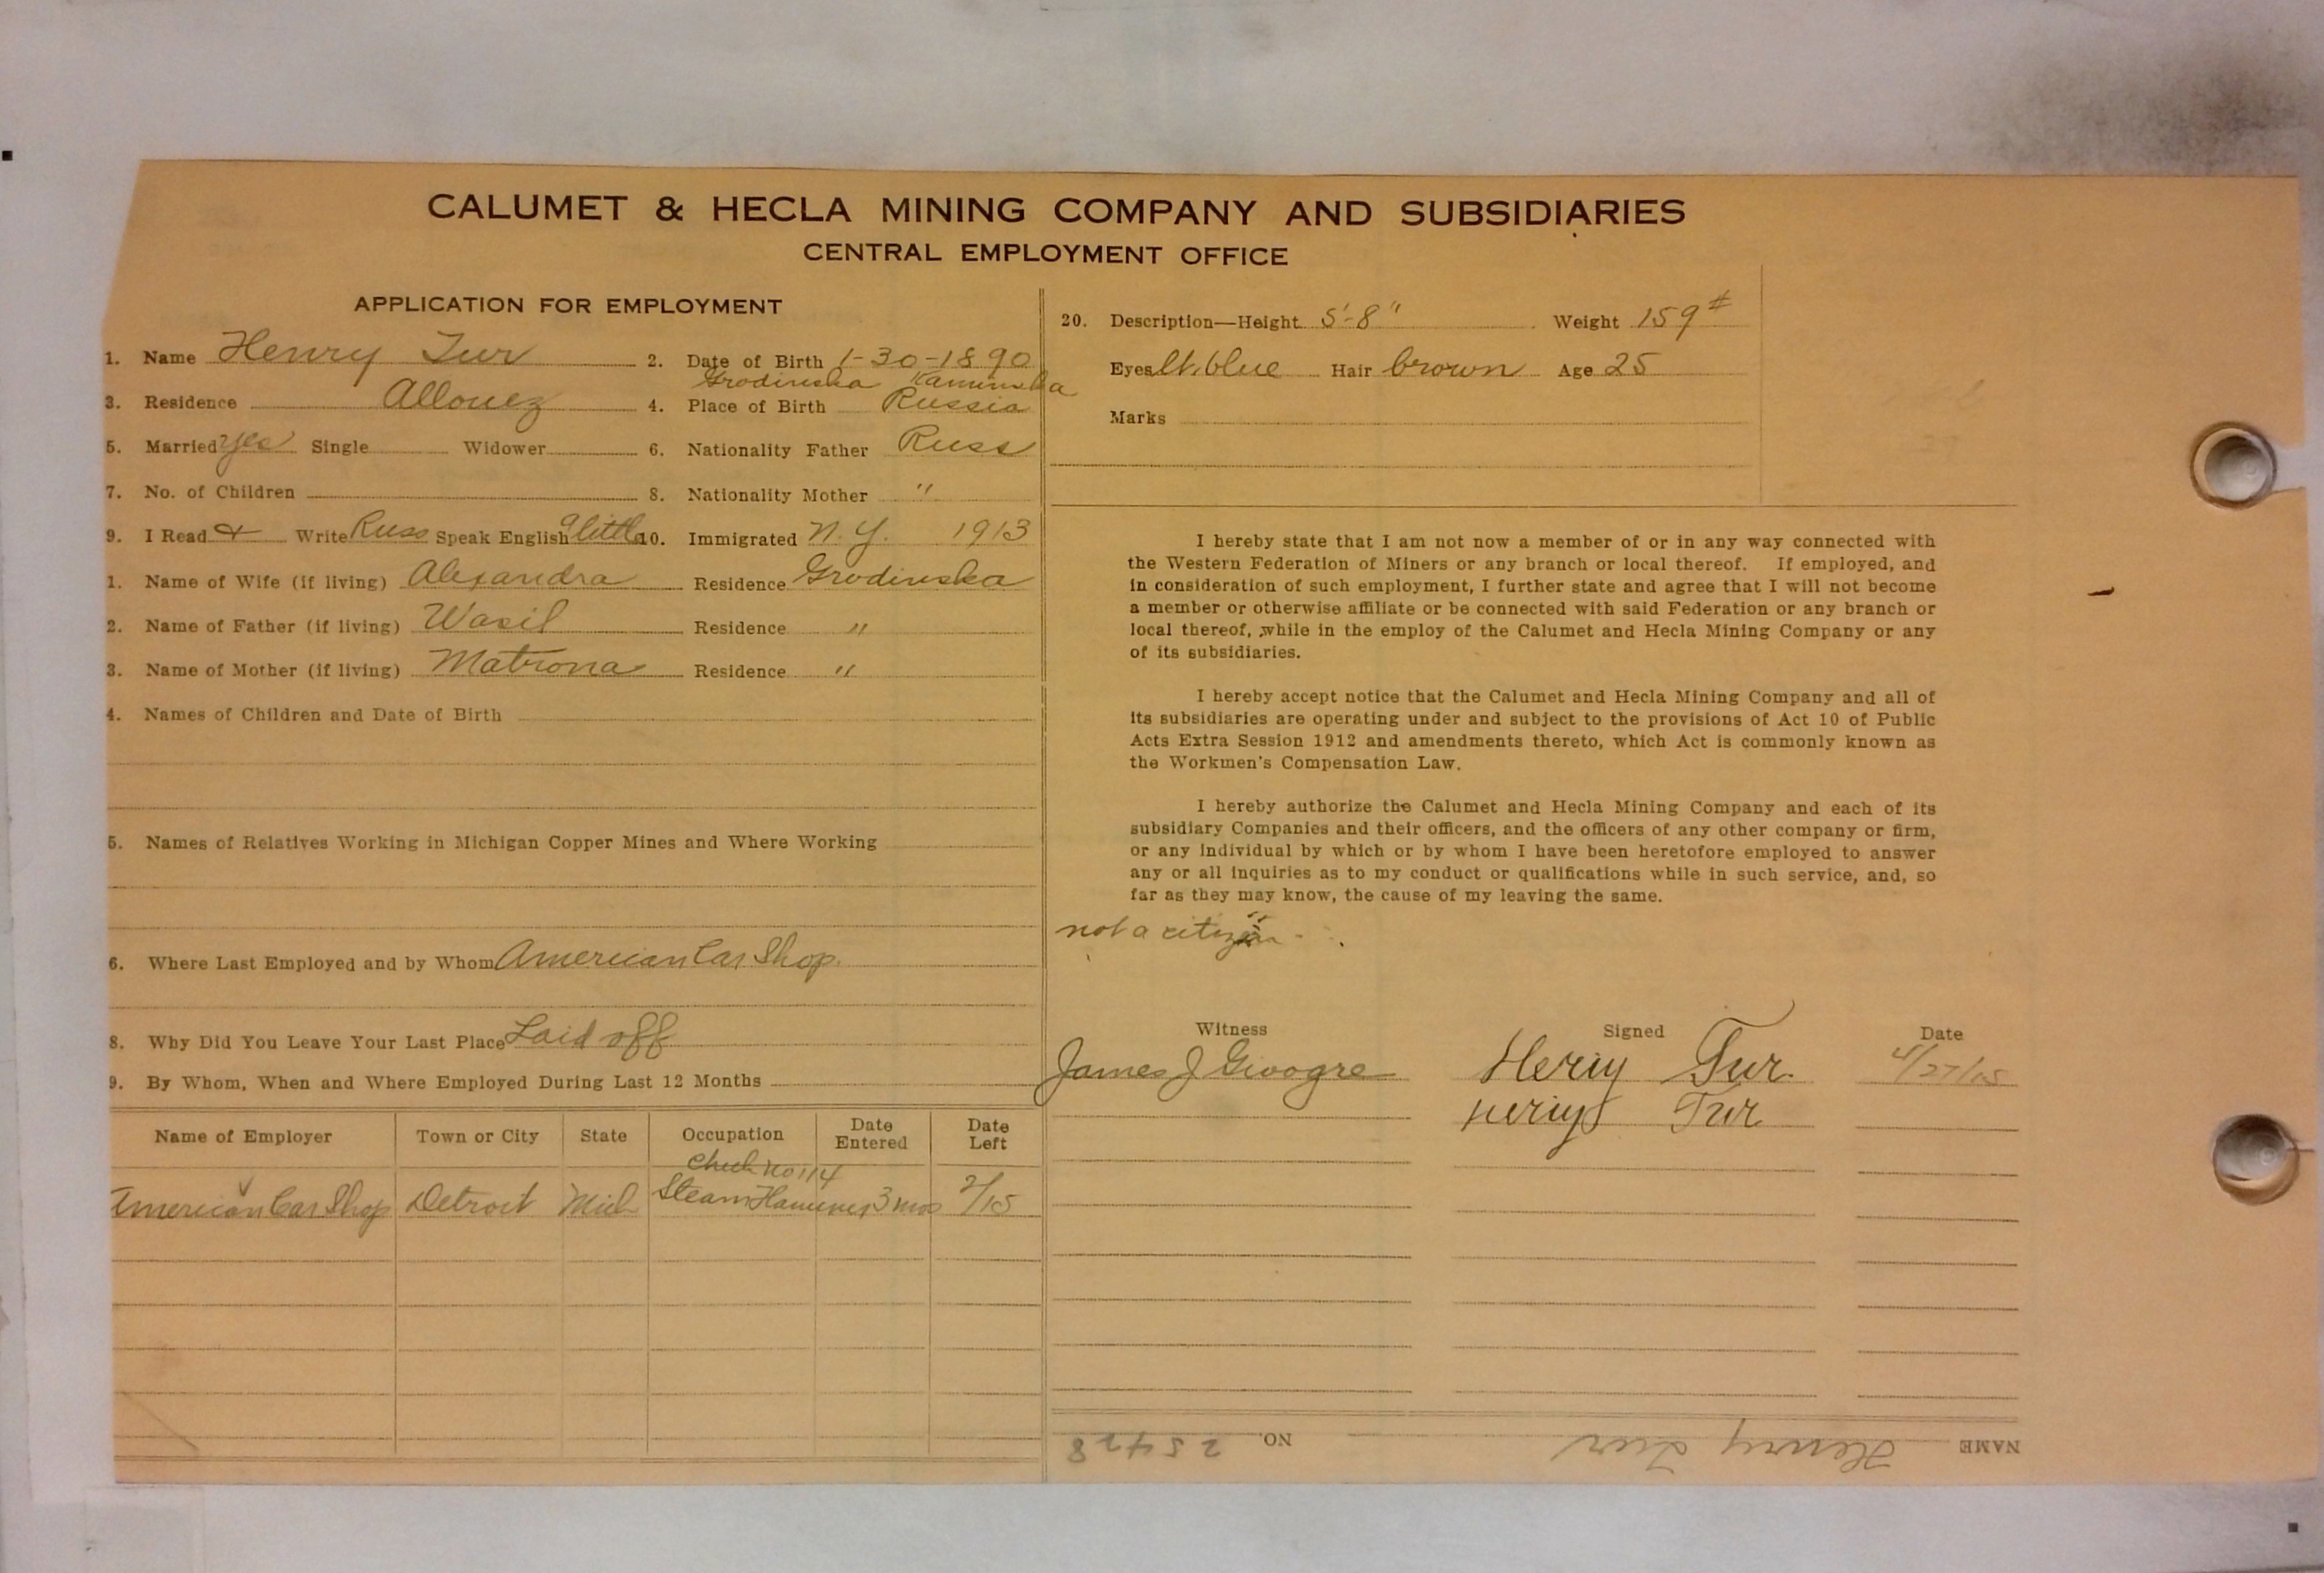 CALUMET & HECLA MINING COMPANY AND SUBSIDIARIES
CENTRAL EMPLOYMENT OFFICE
APPLICATION FOR EMPLOYMENT
1. Name Henry Tur 2. Date of Birth 1-30-1890
Grodinska Kaminska
3. Residence Allouez 4. Place of Birth Russia
5. Married yes Single Widower 6. Nationality Father Russ
7. No. of Children 8. Nationality Mother "
9. I Read & Write Russ Speak English a little 10. Immigrated N.Y. 1913
1. Name of Wife (if living) Alexandra Residence Grodinska
2. Name of Father (if living) Wasil Residence "
3. Name of Mother (if living) Matrona Residence "
4. Names of Children and Date of Birth
5. Names of Relatives Working in Michigan Copper Mines and Where Working
6. Where Last Employed and by Whom American Car Shop.
8. Why Did You Leave Your Last Place Laid off
9. By Whom, When and Where Employed During Last 12 Months
Name of Employer Town or City State Occupation Date Entered Date Left
Check no 114
American Car Shop Detroit Mich Steam Hammer 3 mos 2/15
20. Description—Height 5'-8" Weight 159#
Eyes lt. blue Hair brown Age 25
Marks
I hereby state that I am not now a member of or in any way connected with
the Western Federation of Miners or any branch or local thereof. If employed, and
in consideration of such employment, I further state and agree that I will not become
a member or otherwise affiliate or be connected with said Federation or any branch or
local thereof, while in the employ of the Calumet and Hecla Mining Company or any
of its subsidiaries.
I hereby accept notice that the Calumet and Hecla Mining Company and all of
its subsidiaries are operating under and subject to the provisions of Act 10 of Public
Acts Extra Session 1912 and amendments thereto, which Act is commonly known as
the Workmen's Compensation Law.
I hereby authorize the Calumet and Hecla Mining Company and each of its
subsidiary Companies and their officers, and the officers of any other company or firm,
or any individual by which or by whom I have been heretofore employed to answer
any or all inquiries as to my conduct or qualifications while in such service, and, so
far as they may know, the cause of my leaving the same.
not a citizen
Witness Signed Date
James J Heriy Tur. 4/27/15
Heriy Tur
NAME Henry Tur NO. 25428